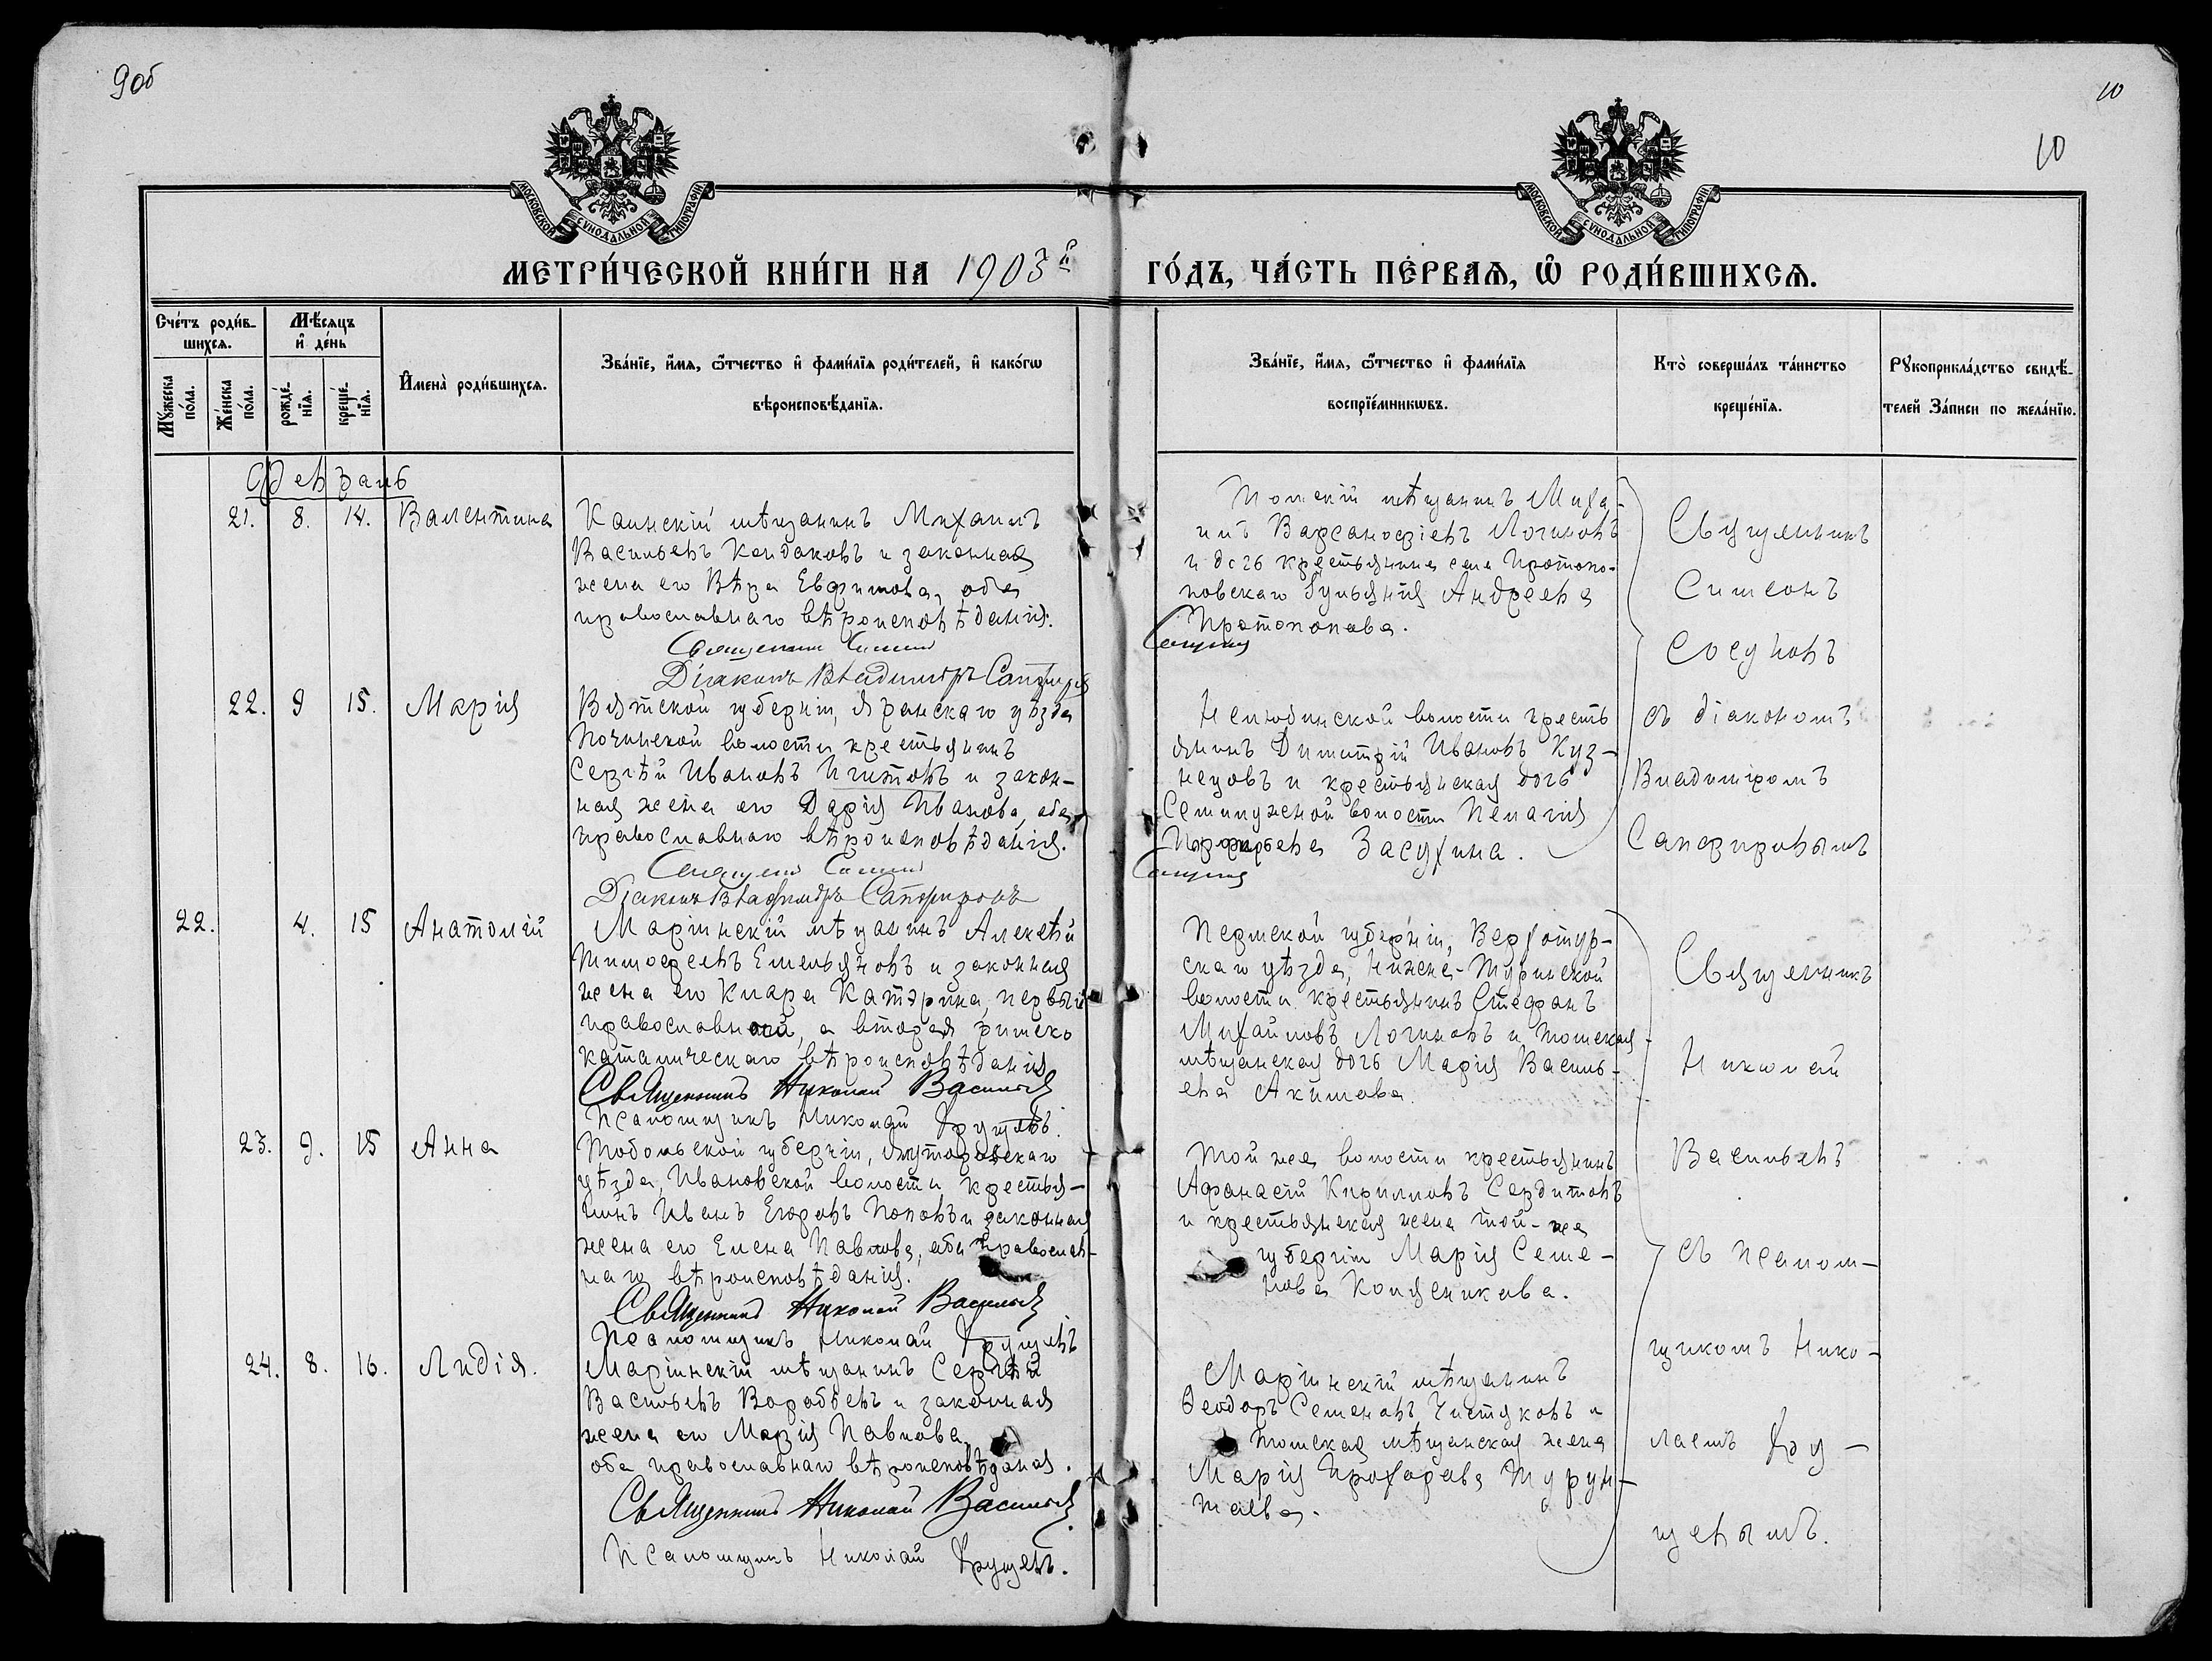 9об
10
10
МОСКОВСКОЙ СѴНОДАЛЬНОЙ ТИПОГРАФІИ
МОСКОВСКОЙ СѴНОДАЛЬНОЙ ТИПОГРАФІИ
МЕТРИ́ЧЕСКОЙ КНИ́ГИ НА 1903й
ГО́ДЪ, ЧА́СТЬ ПЕ́РВАЯ, Ѡ РОДИ́ВШИХСЯ.
Сче́тъ роди́в-
шихся.
Мѣ́сяцъ
и де́нь
Мꙋ́жеска
по́ла.
Же́нска
по́ла.
рожде́-
нїя.
креще́-
нїя.
Имена̀ роди́вшихся.
Зва́нїе, и́мя, ѻ҆́тчество и фами́лїя роди́телей, и како́гѡ
вѣроисповѣ́данїя.
Зва́нїе, и́мя, ѻ҆́тчество и фами́лїя
воспрїе́мникѡвъ.
Кто̀ соверша́лъ та́инство
креще́нїя.
Рꙋкоприкла́дство свидѣ́-
телей За́писи по жела́нїю.
21. 8. 14. Валентина
Каинскій мѣщанинъ Михаилъ
Васильевъ Кондаковъ и законная
жена его Вѣра Евфимова, оба
православнаго вѣроисповѣданія.
Священникъ Симеонъ
Діаконъ Владимиръ Сапфировъ
Томскій мѣщанинъ Миха-
илъ Варсанофіевъ Логиновъ
и дочь крестьянина села Протопо-
повскаго Андреева
Протопопова.
Сосуновъ
Священникъ
Симеонъ
Сосуновъ
съ діакономъ
Владиміромъ
Сапфировымъ
22. 9 15. Марія
Вятской губерніи, Яранскаго уѣзда
Починской волости крестьянинъ
Сергѣй Ивановъ Игитовъ и закон-
ная жена его Дарія Иванова, оба
православнаго вѣроисповѣданія.
Священникъ Симеонъ
Діаконъ Владимиръ Сапфировъ
Нелюбинской волости кресть
янинъ Димитрій Ивановъ Куз-
нецовъ и крестьянская дочь
Семилужной волости Пелагія
Порфирьева Засухина.
Сосуновъ
22. 4. 15 Анатолій
Маріинскій мѣщанинъ Алексѣй
Тимофеевъ Емельяновъ и законная
жена его Клара Катэрина, первый
православной, а вторая римско
католическаго вѣроисповѣданія
Священникъ Николай Васильевъ
Псаломщикъ Николай Хрущевъ.
Пермской губерніи, Верхотур-
скаго уѣзда, Нижне-Туринской
волости крестьянинъ Стефанъ
Михайловъ Логиновъ и томская
мѣщанская дочь Марія Василь-
ева Акимова.
Священникъ
Николай
Васильевъ
съ псалом-
щикомъ Нико-
лаемъ Хру-
щевымъ.
23. 9. 15 Анна
Тобольской губерніи, Ялуторовскаго
уѣзда, Ивановской волости крестья-
нинъ Иванъ Егоровъ Поповъ и законная
жена его Елена Павлова, оба православ-
наго вѣроисповѣданія.
Священникъ Николай Васильевъ
Псаломщикъ Николай Хрущевъ
Той же волости крестьянинъ
Афанасій Кирилловъ Сердитовъ
и крестьянская жена той-же
губерніи Марія Семе-
нова
24. 8. 16. Лидія.
Маріинскій мѣщанинъ Сергѣй
Васильевъ Воробьевъ и законная
жена его Марія Павлова,
оба православнаго вѣроисповѣданія.
Священникъ Николай Васильевъ
Псаломщикъ Николай Хрущевъ.
Маріинскій мѣщанинъ
Ѳеодоръ Семеновъ Чистяковъ и
Томская мѣщанская жена
Марія Прохорова Турун-
таева.